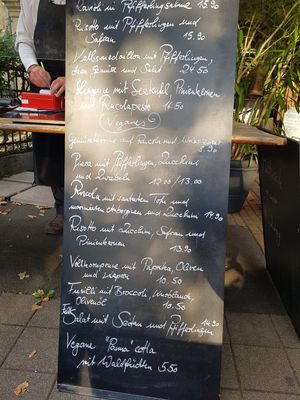 Ravioli in Pfifferlingsahne 15.90
Risotto mit Pfifferlingen und
Safran 15.90
Kalbsmedaillon mit Pfifferlingen,
Gemüse und Salat 24.50
mit Seitan, Pinienkernen
und Rucolapesto 16.50
(Veganes)
auf Rucola und
9.90
Pizza mit Pfifferlingen, Zucchini
und Zwiebeln 12.00/13.00
Rucola mit Tofu und
marinierten Auberginen und Zucchini 14.90
Risotto mit Zucchini, Safran und
Pinienkernen
13.90
Vollkornpenne mit Paprika, Oliven
und Kapern 10.50
Fusilli mit Broccoli, Knoblauch,
Olivenöl 10.50
Salat mit Seitan und Pfifferlingen 14.90
Vegane "Panna" cotta
mit Waldfrüchten 5.50